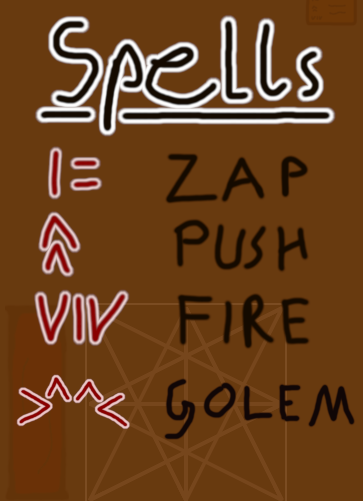 Spells
I= ZAP
^^ PUSH
VIV FIRE
>^^< GOLEM